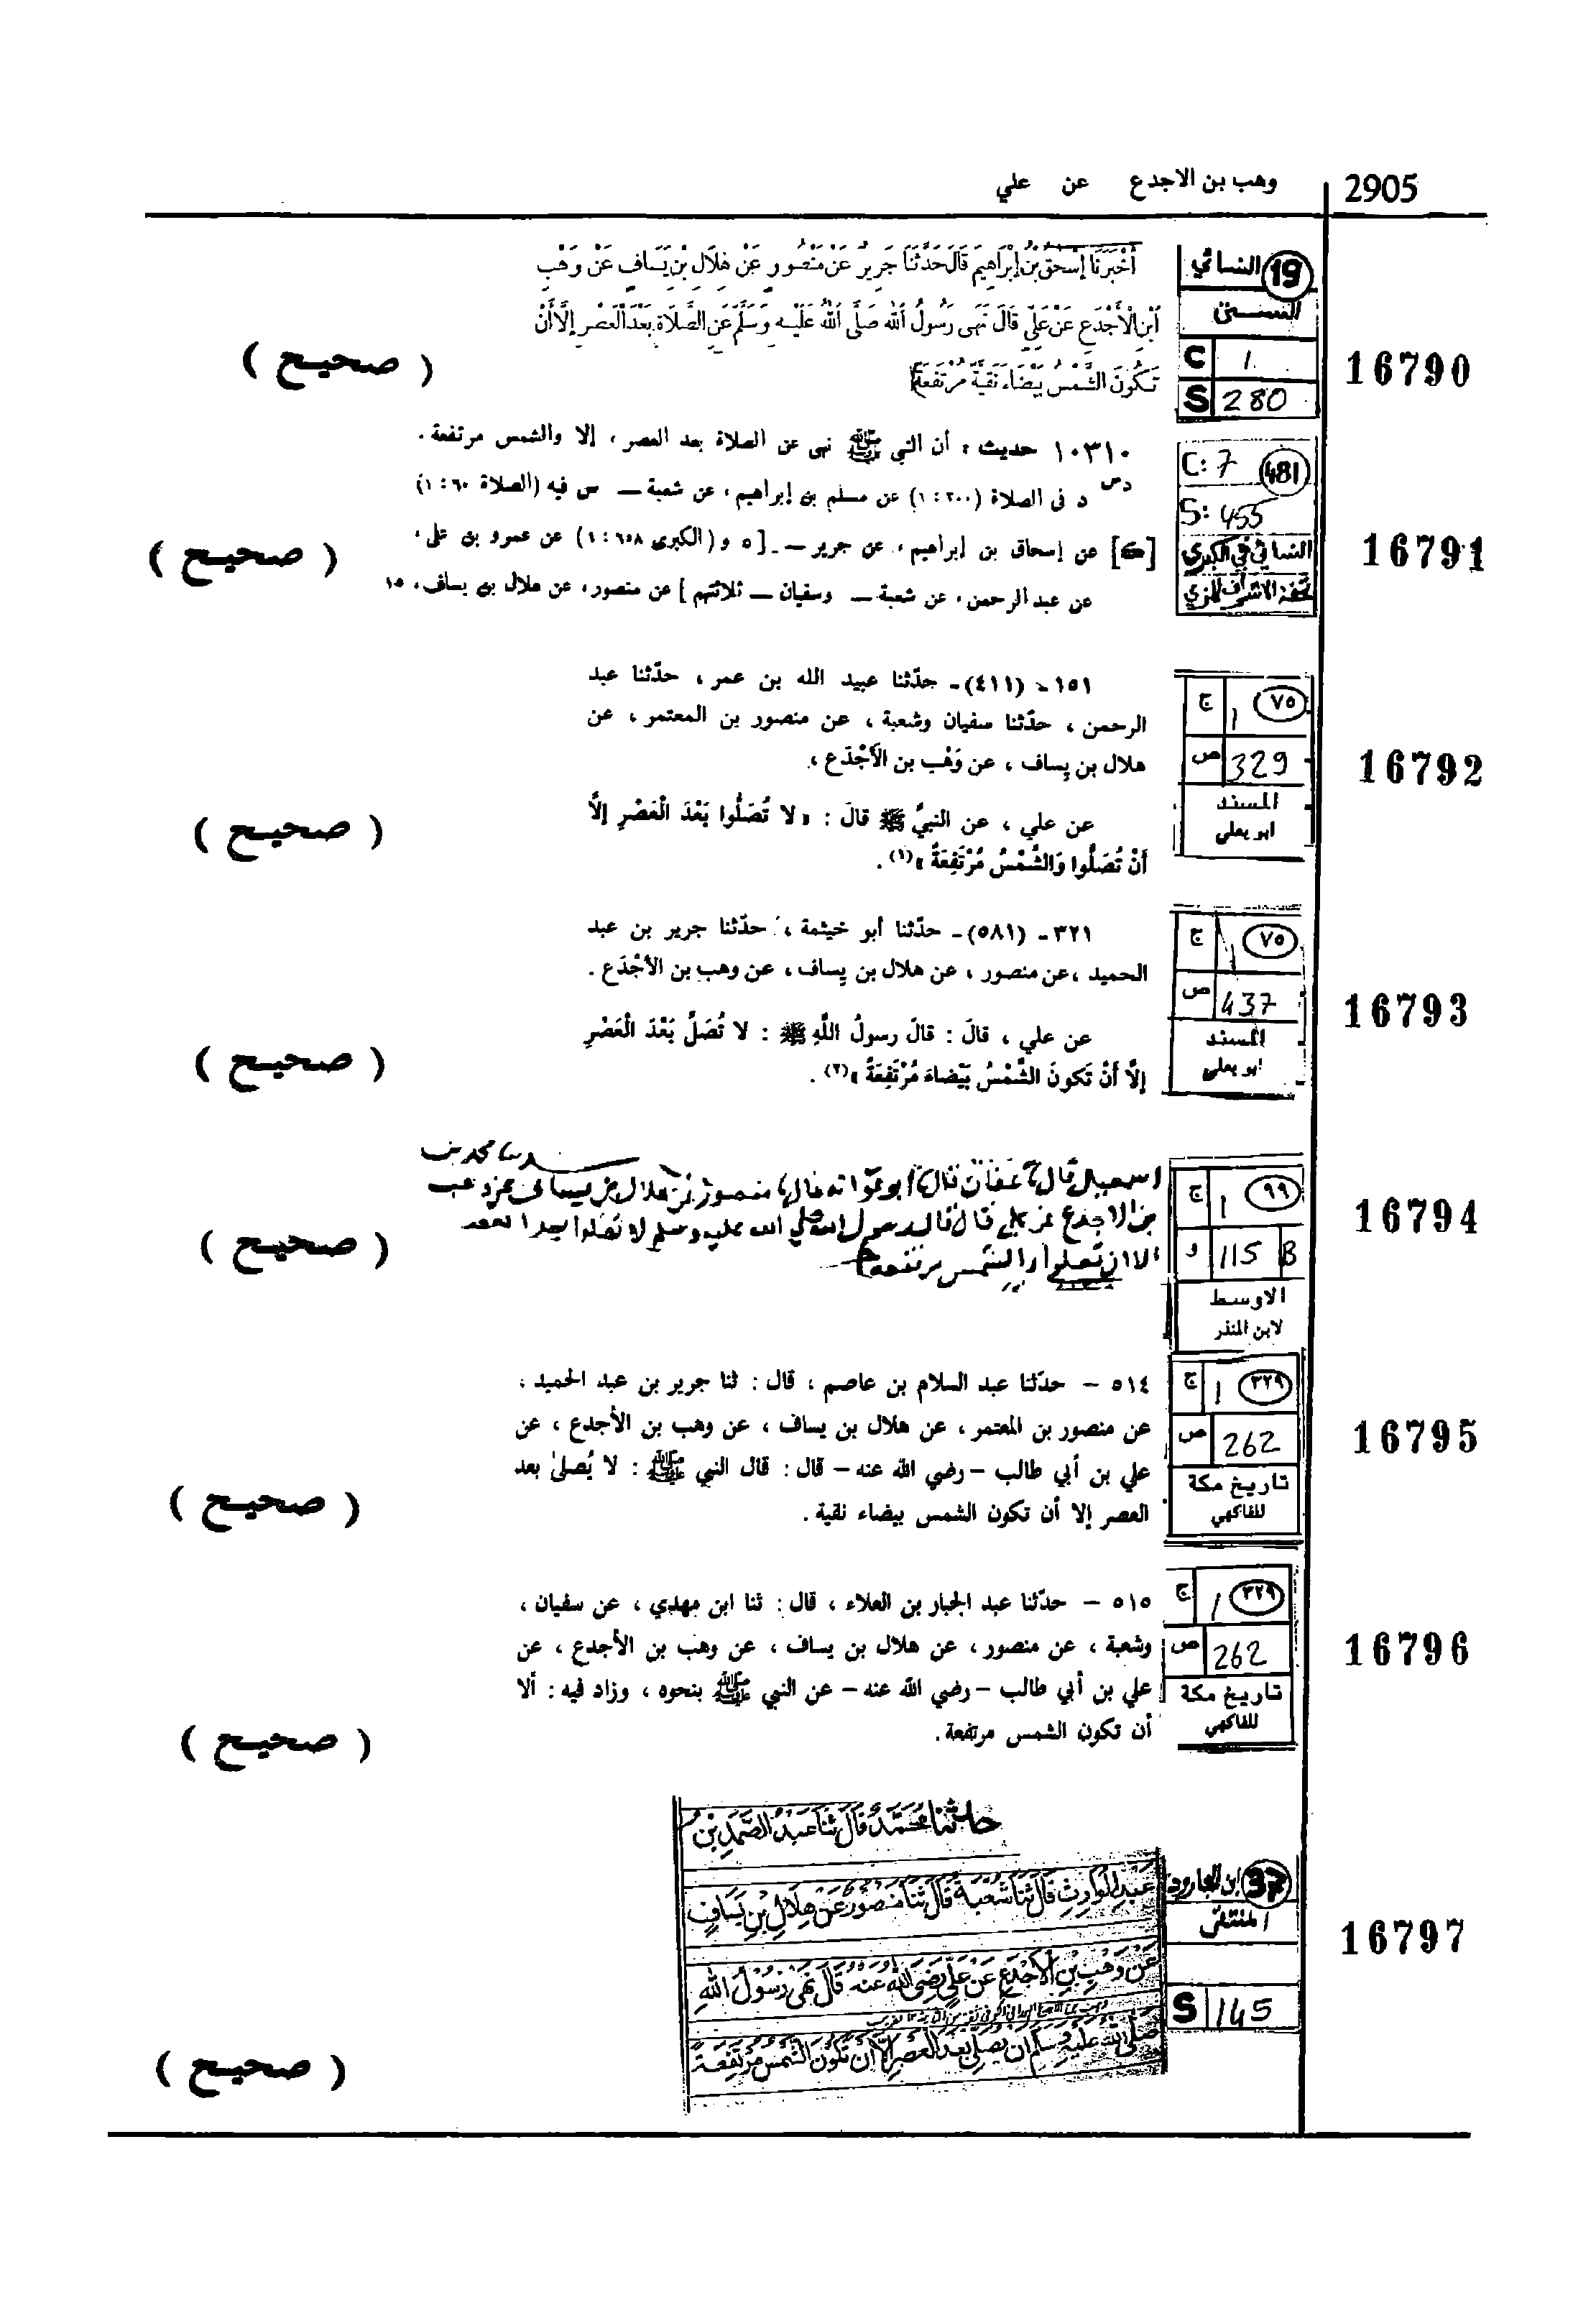 2905
وهب بن الاجدع عن علي
16790
19 النسائي
السنن
C 1
S 280
أَخْبَرَنَا إِسْحٰقُ بْنُ إِبْرَاهِيمَ قَالَ حَدَّثَنَا جَرِيرٌ عَنْ مَنْصُورٍ عَنْ هِلَالِ بْنِ يَسَافٍ عَنْ وَهْبِ
ابْنِ الْأَجْدَعِ عَنْ عَلِيٍّ قَالَ نَهَى رَسُولُ اللهِ صَلَّى اللهُ عَلَيْهِ وَسَلَّمَ عَنِ الصَّلَاةِ بَعْدَ الْعَصْرِ إِلَّا أَنْ
تَكُونَ الشَّمْسُ بَيْضَاءَ نَقِيَّةً مُرْتَفِعَةً
( صحيح )
16791
C: 7 481
S: 455
النسائي في الكبرى
تحفة الاشراف للمزي
١٠٣١٠ حديث : أن النبي ﷺ نهى عن الصلاة بعد العصر ، إلا والشمس مرتفعة .
د س
د فى الصلاة (٣٠٠ : ١) عن مسلم بن إبراهيم ، عن شعبة — س فيه (الصلاة ٦٠ : ١)
[ك] عن إسحاق بن إبراهيم ، عن جرير — . [٥ و (الكبرى ٦٥٨ : ١) عن عمرو بن على ،
عن عبد الرحمن ، عن شعبة — وسفيان — ثلاثتهم ] عن منصور ، عن هلال بن يساف ، ١٥
( صحيح )
16792
٧٥ ج 1
ص 329
المسند
ابو يعلى
١٥١ - (٤١١) - حدّثنا عبيد الله بن عمر ، حدّثنا عبد
الرحمن ، حدّثنا سفيان وشعبة ، عن منصور بن المعتمر ، عن
هلال بن يِساف ، عن وَهْب بن الأَجْدَع ،
عن علي ، عن النبيِّ ﷺ قالَ : « لا تُصَلُّوا بَعْدَ الْعَصْرِ إلاَّ
أَنْ تُصَلُّوا وَالشَّمْسُ مُرْتَفِعَةٌ »(١) .
( صحيح )
16793
٧٥ ج 1
ص 437
المسند
ابو يعلى
٣٢١ - (٥٨١) - حدّثنا أبو خيثمة ، حدّثنا جرير بن عبد
الحميد ، عن منصور ، عن هلال بن يِساف ، عن وهب بن الأَجْدَع .
عن علي ، قالَ : قالَ رسولُ اللَّهِ ﷺ : لا تُصَلِّ بَعْدَ الْعَصْرِ
إلاَّ أَنْ تَكونَ الشَّمْسُ بَيْضاءَ مُرْتَفِعَةً »(٢) .
( صحيح )
16794
٩٩ ج 1
و 115 B
الاوسط
لابن المنذر
محمد بن
اسمعيل قال ثنا عفان قال ثنا ابو عوانه قال ثنا منصور عن هلال بن يساف عن وهب
بن الاجدع عن علي قال قال رسول الله صلي الله عليه وسلم لا تصلوا بعد العصر
الا ان تصلوا والشمس مرتفعة
( صحيح )
16795
٣٢٩ ج 1
ص 262
تاريخ مكة
للفاكهي
٥١٤ – حدّثنا عبد السلام بن عاصم ، قال : ثنا جرير بن عبد الحميد ،
عن منصور بن المعتمر ، عن هلال بن يساف ، عن وهب بن الأجدع ، عن
علي بن أبي طالب – رضي الله عنه – قال : قال النبي ﷺ : لا يُصلىٰ بعد
العصر إلا أن تكون الشمس بيضاء نقية .
( صحيح )
16796
٣٢٩ ج 1
ص 262
تاريخ مكة
للفاكهي
٥١٥ – حدّثنا عبد الجبار بن العلاء ، قال : ثنا ابن مهدي ، عن سفيان ،
وشعبة ، عن منصور ، عن هلال بن يساف ، عن وهب بن الأجدع ، عن
علي بن أبي طالب – رضي الله عنه – عن النبي ﷺ بنحوه ، وزاد فيه : ألا
أن تكون الشمس مرتفعة .
( صحيح )
16797
37 ابن الجارود
المنتقى
S 145
حدثنا مُحَمَّدٌ قَالَ ثَنَا عَبْدُ الصَّمَدِ بْنُ
عَبْدِ الْوَارِثِ قَالَ ثَنَا شُعْبَةُ قَالَ ثَنَا مَنْصُورٌ عَنْ هِلَالِ بْنِ يَسَافٍ
عَنْ وَهْبِ بْنِ الْأَجْدَعِ عَنْ عَلِيٍّ رَضِيَ اللهُ عَنْهُ قَالَ نَهَى رَسُوْلُ اللهِ
صَلَّى اللهُ عَلَيْهِ وَسَلَّمَ أَنْ يُصَلَّى بَعْدَ الْعَصْرِ إِلَّا أَنْ تَكُوْنَ الشَّمْسُ مُرْتَفِعَةً
( صحيح )